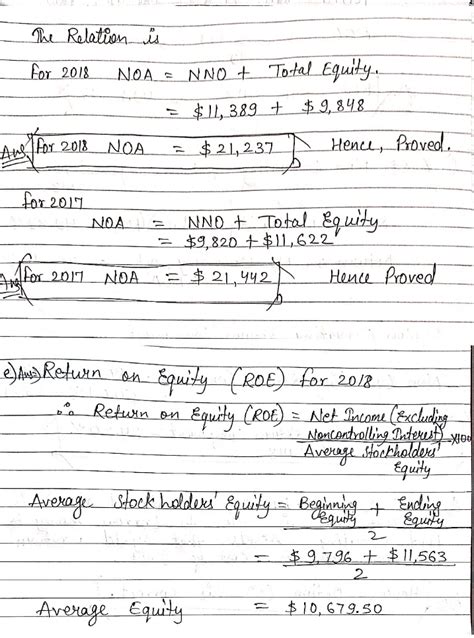 The Relation is
For 2018 NOA = NNO + Total Equity.
= $11,389 + $9,848
Ans for 2018 NOA = $21,237 Hence, Proved.
for 2017
NOA = NNO + Total Equity
= $9,820 + $11,622
Ans for 2017 NOA = $21,442 Hence Proved
e) Ans) Return on Equity (ROE) for 2018
∴ Return on Equity (ROE) = Net Income (Excluding
Noncontrolling Interest) X100
Average Stockholders'
Equity
Average Stockholders' Equity = Beginning Equity + Ending Equity
2
= $9,796 + $11,563
2
Average Equity = $10,679.50